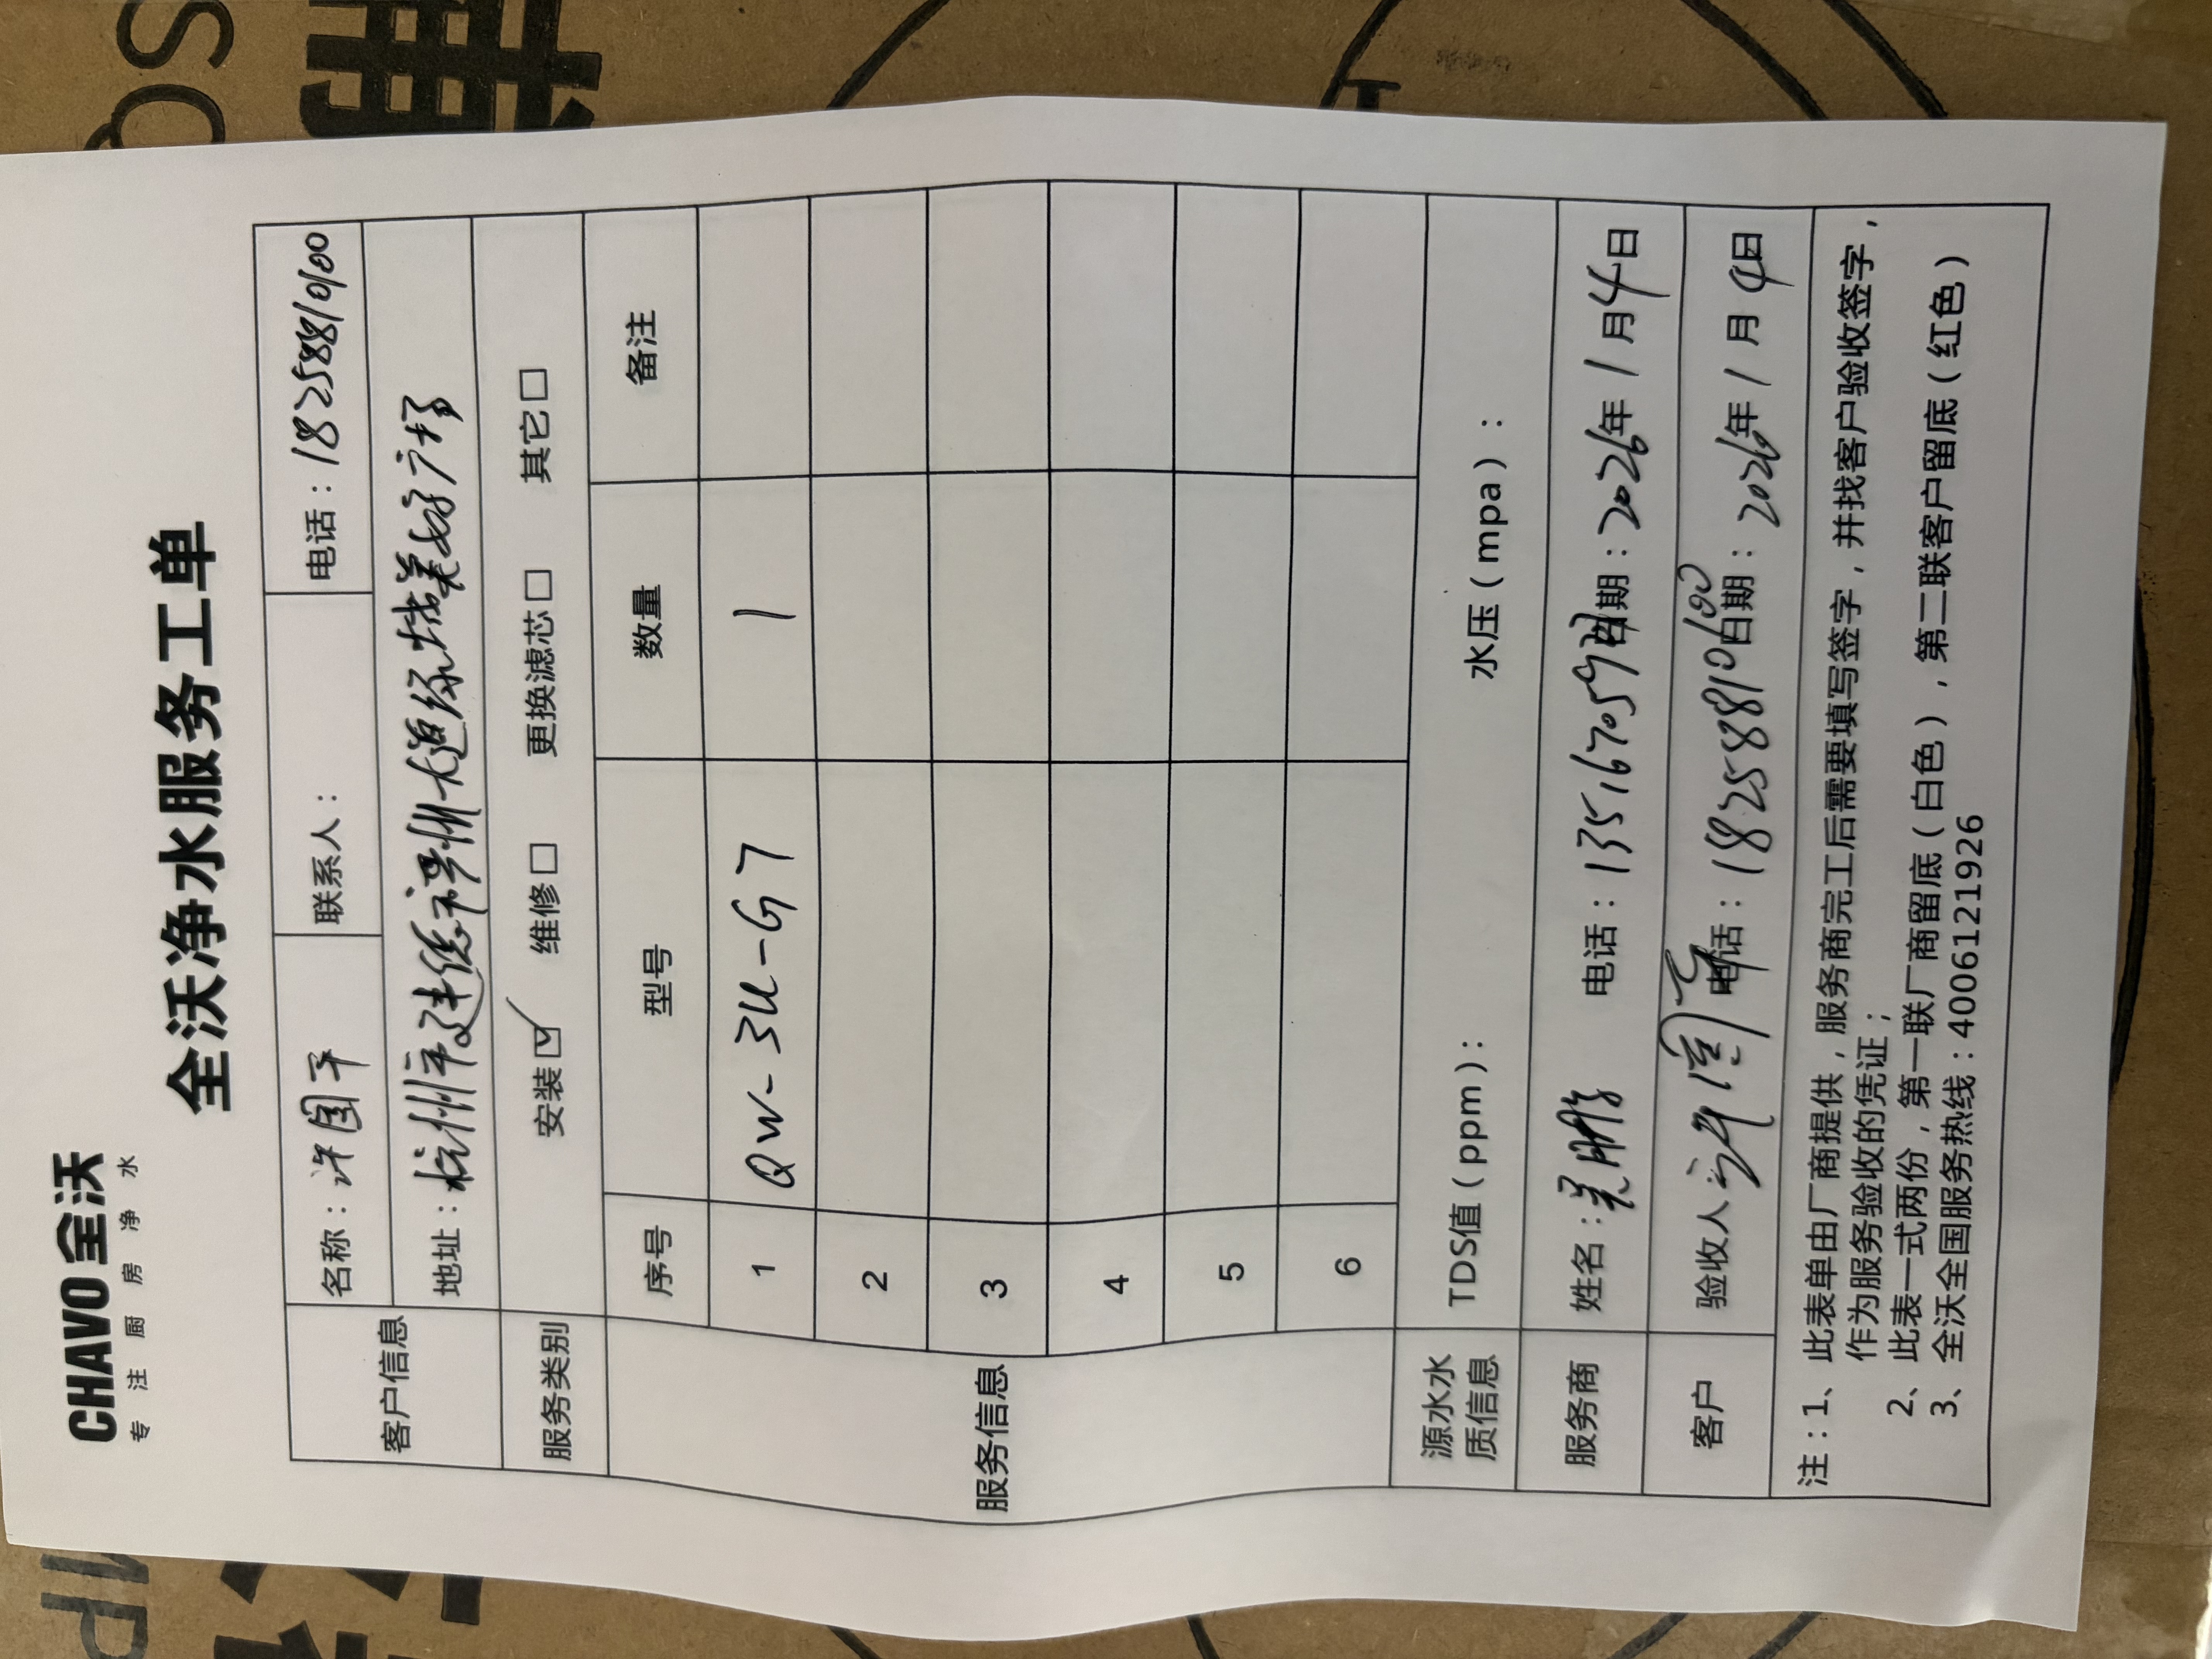 CHAVO 全沃
专注厨房净水
全沃净水服务工单
客户信息
名称：许国平 联系人： 电话：18258810100
地址：杭州市建德
服务类别 安装☑ 维修□ 更换滤芯□ 其它□
服务信息
序号 型号 数量 备注
1 QW-3U-G7 1
2
3
4
5
6
源水水质信息 TDS值（ppm）： 水压（mpa）：
服务商 姓名： 电话： 日期：2026年1月4日
客户 验收人： 电话：18258810100 日期：2026年1月4日
注：1、此表单由厂商提供，服务商完工后需要填写签字，并找客户验收签字，
作为服务验收的凭证；
2、此表一式两份，第一联厂商留底（白色），第二联客户留底（红色）
3、全沃全国服务热线：4006121926